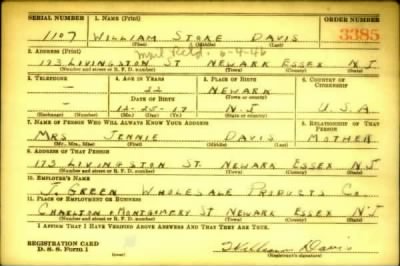 SERIAL NUMBER 1. NAME (Print) ORDER NUMBER
1107 WILLIAM STOKE DAVIS 3385
(First) (Middle) (Last)
2. ADDRESS (Print) 6-4-46
173 LIVINGSTON ST NEWARK ESSEX N.J.
(Number and street or R. F. D. number) (Town) (County) (State)
3. TELEPHONE 4. AGE IN YEARS 5. PLACE OF BIRTH 6. COUNTRY OF CITIZENSHIP
— 22 NEWARK
DATE OF BIRTH (Town or county)
12-25-17 N.J. U.S.A.
(Exchange) (Number) (Mo.) (Day) (Yr.) (State or country)
7. NAME OF PERSON WHO WILL ALWAYS KNOW YOUR ADDRESS 8. RELATIONSHIP OF THAT PERSON
MRS JENNIE DAVIS MOTHER
(Mr., Mrs., Miss) (First) (Middle) (Last)
9. ADDRESS OF THAT PERSON
173 LIVINGSTON ST. NEWARK ESSEX N.J.
(Number and street or R. F. D. number) (Town) (County) (State)
10. EMPLOYER'S NAME
J. GREEN WHOLESALE PRODUCTS CO.
11. PLACE OF EMPLOYMENT OR BUSINESS
CHARLTON & MONTGOMERY ST NEWARK ESSEX N.J.
(Number and street or R. F. D. number) (Town) (County) (State)
I AFFIRM THAT I HAVE VERIFIED ABOVE ANSWERS AND THAT THEY ARE TRUE.
REGISTRATION CARD
D. S. S. Form 1 William Davis
(Registrant's signature)